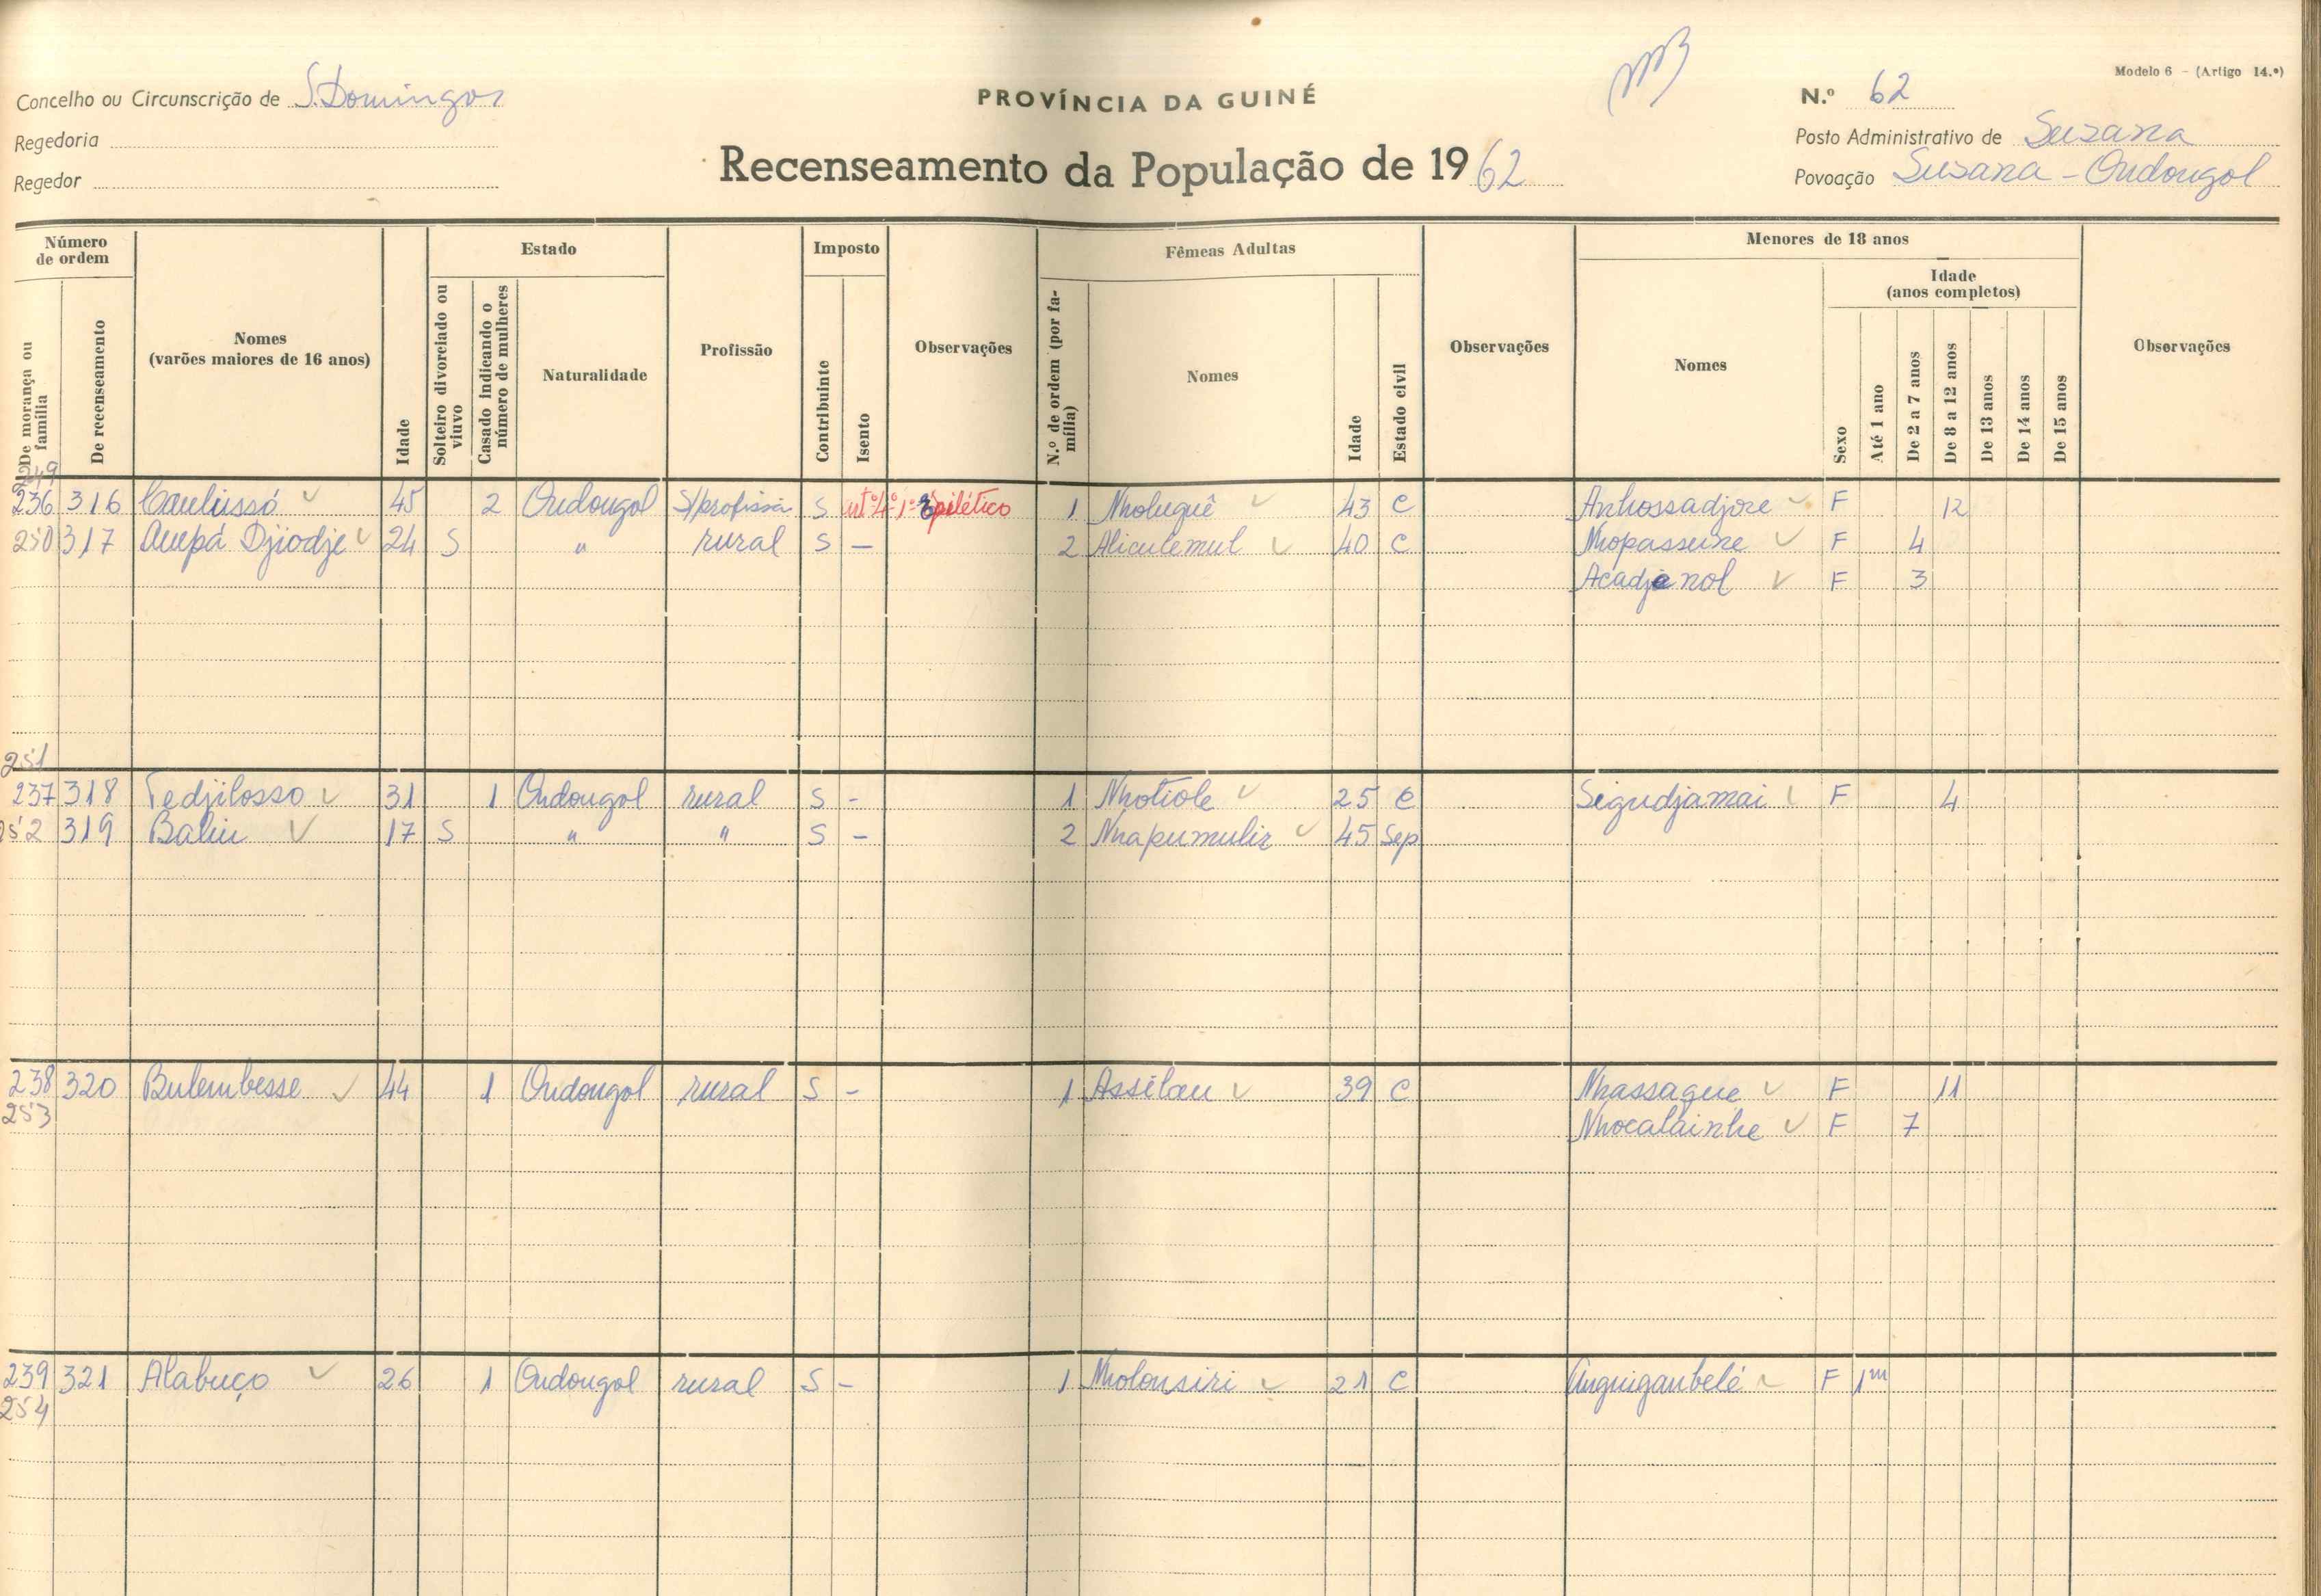 Modelo 6 - (Artigo 14.º)
Concelho ou Circunscrição de S. Domingos PROVÍNCIA DA GUINÉ N.º 62
Regedoria Posto Administrativo de Suzana
Regedor Recenseamento da População de 1962 Povoação Susana - Oudougol
Número de ordem
De morança ou família
De recenseamento
Nomes
(varões maiores de 16 anos)
Idade
Estado
Solteiro divorciado ou viuvo
Casado indicando o número de mulheres
Naturalidade
Profissão
Imposto
Contribuinte
Isento
Observações
Fêmeas Adultas
N.º de ordem (por família)
Nomes
Idade
Estado civil
Observações
Menores de 18 anos
Nomes
Sexo
Idade
(anos completos)
Até 1 ano
De 2 a 7 anos
De 8 a 12 anos
De 13 anos
De 14 anos
De 15 anos
Observações
249
236 316 Caulissó 45 2 Oudougol S/profissão S epilético 1 Nholuguê 43 C Anhossadjore F 12
250 317 Aupá Djiodje 24 S " rural S - 2 Aliculemul 40 C Nhopasseine F 4
Acadjanol F 3
251
237 318 Tedjilosso 31 1 Oudougol rural S - 1 Nhotiole 25 C Segudjamai F 4
252 319 Baliu 17 S " " S - 2 Nhapumulir 45 Sep
238 320 Bulembesse 44 1 Oudougol rural S - 1 Assilau 39 C Nhassague F 11
253 Nhocalainhe F 7
239 321 Alabuço 26 1 Oudougol rural S - 1 Nholonsiri 21 C Anguigaubelé F 1m
254